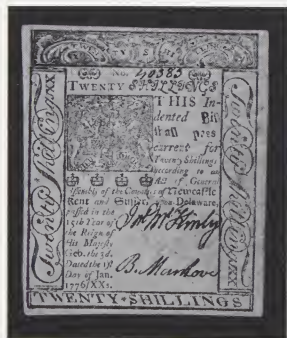 TWENTY SHILLINGS
No. 40383
TWENTY SHILLINGS
THIS In-
dented Bill
shall pass
current for
Twenty Shillings
according to an
Act of General
Assembly of the Counties of Newcastle
Kent and Sussex, upon Delaware,
passed in the
15th Year of
the Reign of
His Majesty
Geo. the 3d.
Dated the 1st
Day of Jan.
1776. XXs.
B. Manlove
Twenty Shillings XX
Twenty Shillings XX
TWENTY SHILLINGS